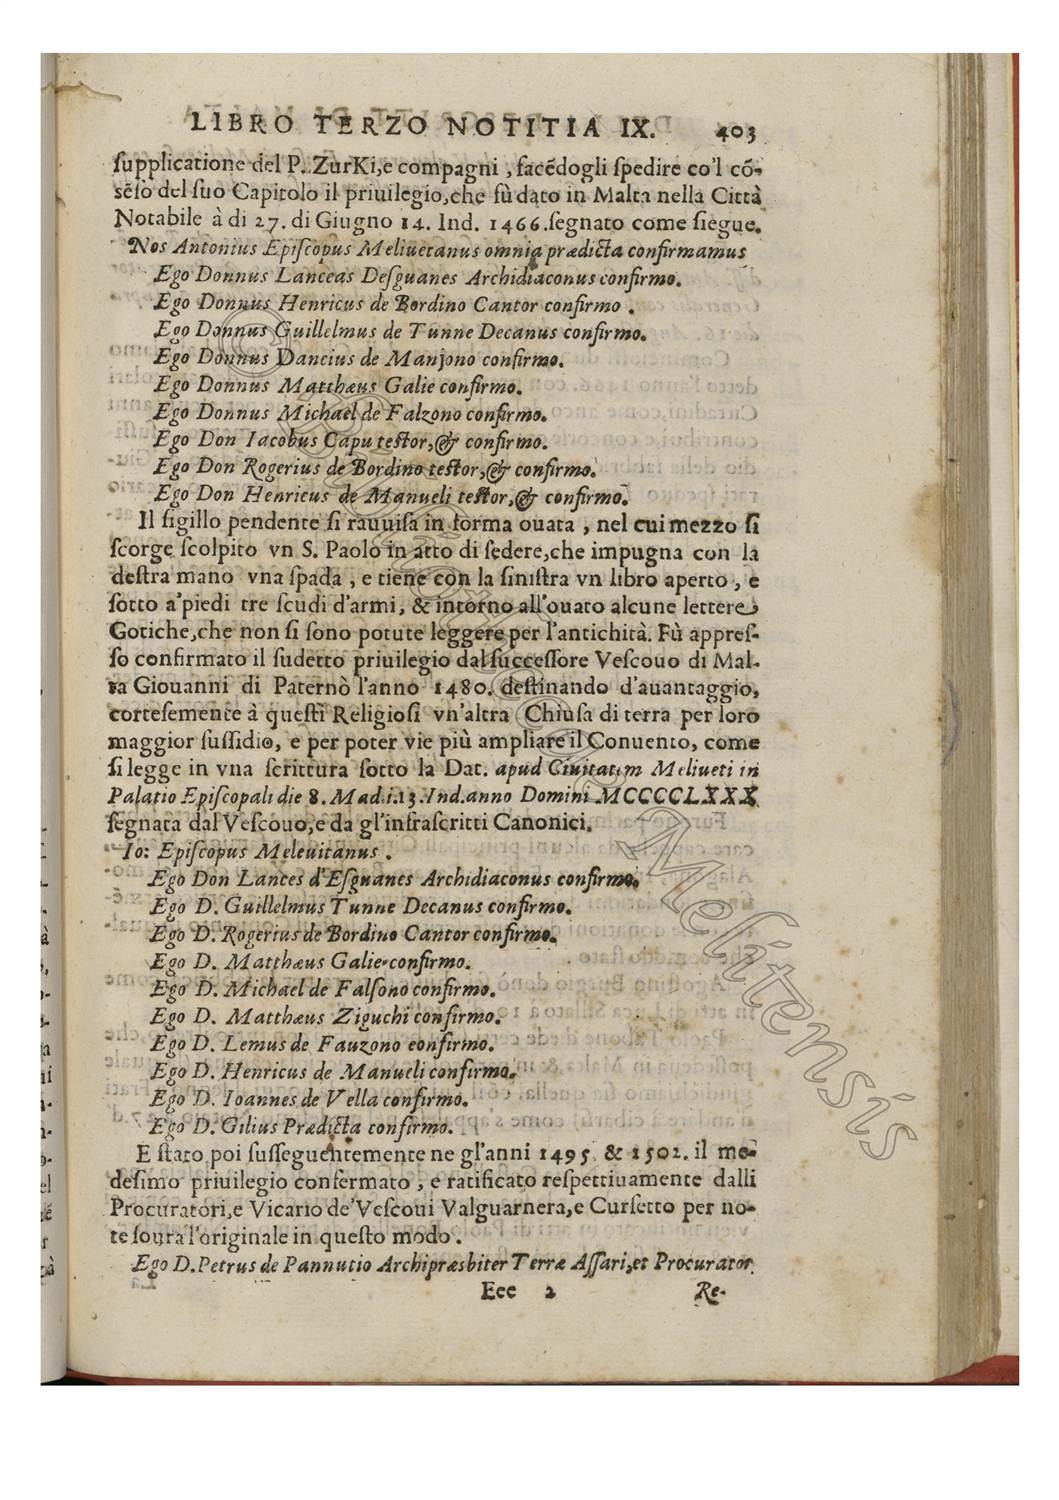 LIBRO TERZO NOTITIA IX. 403
ſupplicatione del P. ZurKi,e compagni , facẽdogli ſpedire co'l cõ-
sẽſo del ſuo Capitolo il priuilegio,che fù dato in Malta nella Città
Notabile à di 27. di Giugno 14. Ind. 1466.ſegnato come ſiegue.
Nos Antonius Epiſcopus Meliuetanus omnia prædicta confirmamus
Ego Donnus Lanceas Deſguanes Archidiaconus confirmo.
Ego Donnus Henricus de Bordino Cantor confirmo .
Ego Donnus Guillelmus de Tunne Decanus confirmo.
Ego Donnus Dancius de Manjono confirmo.
Ego Donnus Matthæus Galie confirmo.
Ego Donnus Michael de Falzono confirmo.
Ego Don Iacobus Capu teſtor,& confirmo.
Ego Don Rogerius de Bordino teſtor,& confirmo.
Ego Don Henricus de Manueli teſtor,& confirmo.
Il ſigillo pendente ſi rauuiſa in forma ouata , nel cui mezzo ſi
ſcorge ſcolpito vn S. Paolo in atto di ſedere,che impugna con la
deſtra mano vna ſpada , e tiene con la ſiniſtra vn libro aperto , e
ſotto a'piedi tre ſcudi d'armi, & intorno all'ouato alcune lettere
Gotiche,che non ſi ſono potute leggere per l'antichità. Fù appreſ-
ſo confirmato il ſudetto priuilegio dal ſucceſſore Veſcouo di Mal-
ta Giouanni di Paternò l'anno 1480. deſtinando d'auantaggio,
corteſemente à queſti Religioſi vn'altra Chiuſa di terra per loro
maggior ſuſſidio, e per poter vie più ampliare il Conuento, come
ſi legge in vna ſcrittura ſotto la Dat. apud Ciuitatem Meliueti in
Palatio Epiſcopali die 8. Madii.13.Ind.anno Domini MCCCCLXXX
ſegnata dal Veſcouo,e da gl'infraſcritti Canonici.
Io: Epiſcopus Meleuitanus .
Ego Don Lances d'Eſguanes Archidiaconus confirmo.
Ego D. Guillelmus Tunne Decanus confirmo.
Ego D. Rogerius de Bordino Cantor confirmo.
Ego D. Matthæus Galie confirmo.
Ego D. Michael de Falſono confirmo.
Ego D. Matthæus Ziguchi confirmo.
Ego D. Lemus de Fauzono confirmo.
Ego D. Henricus de Manueli confirmo.
Ego D. Ioannes de Vella confirmo.
Ego D. Gilius Prædicta confirmo.
E ſtato poi ſuſſeguentemente ne gl'anni 1495. & 1502. il me-
deſimo priuilegio confermato , e ratificato reſpettiuamente dalli
Procuratori,e Vicario de'Veſcoui Valguarnera,e Curſetto per no-
te ſoura l'originale in queſto modo .
Ego D.Petrus de Pannutio Archipræsbiter Terræ Aſſari,et Procurator
Eee 2 Re-
Melitensis